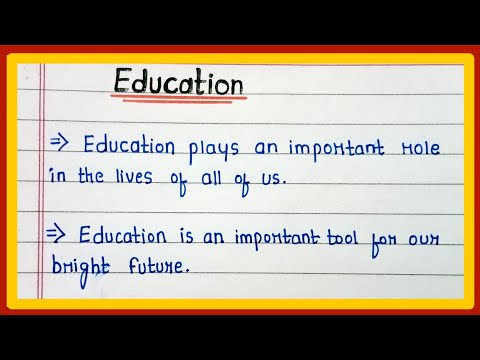 Education
⇒ Education plays an important role
in the lives of all of us.
⇒ Education is an important tool for our
bright future.